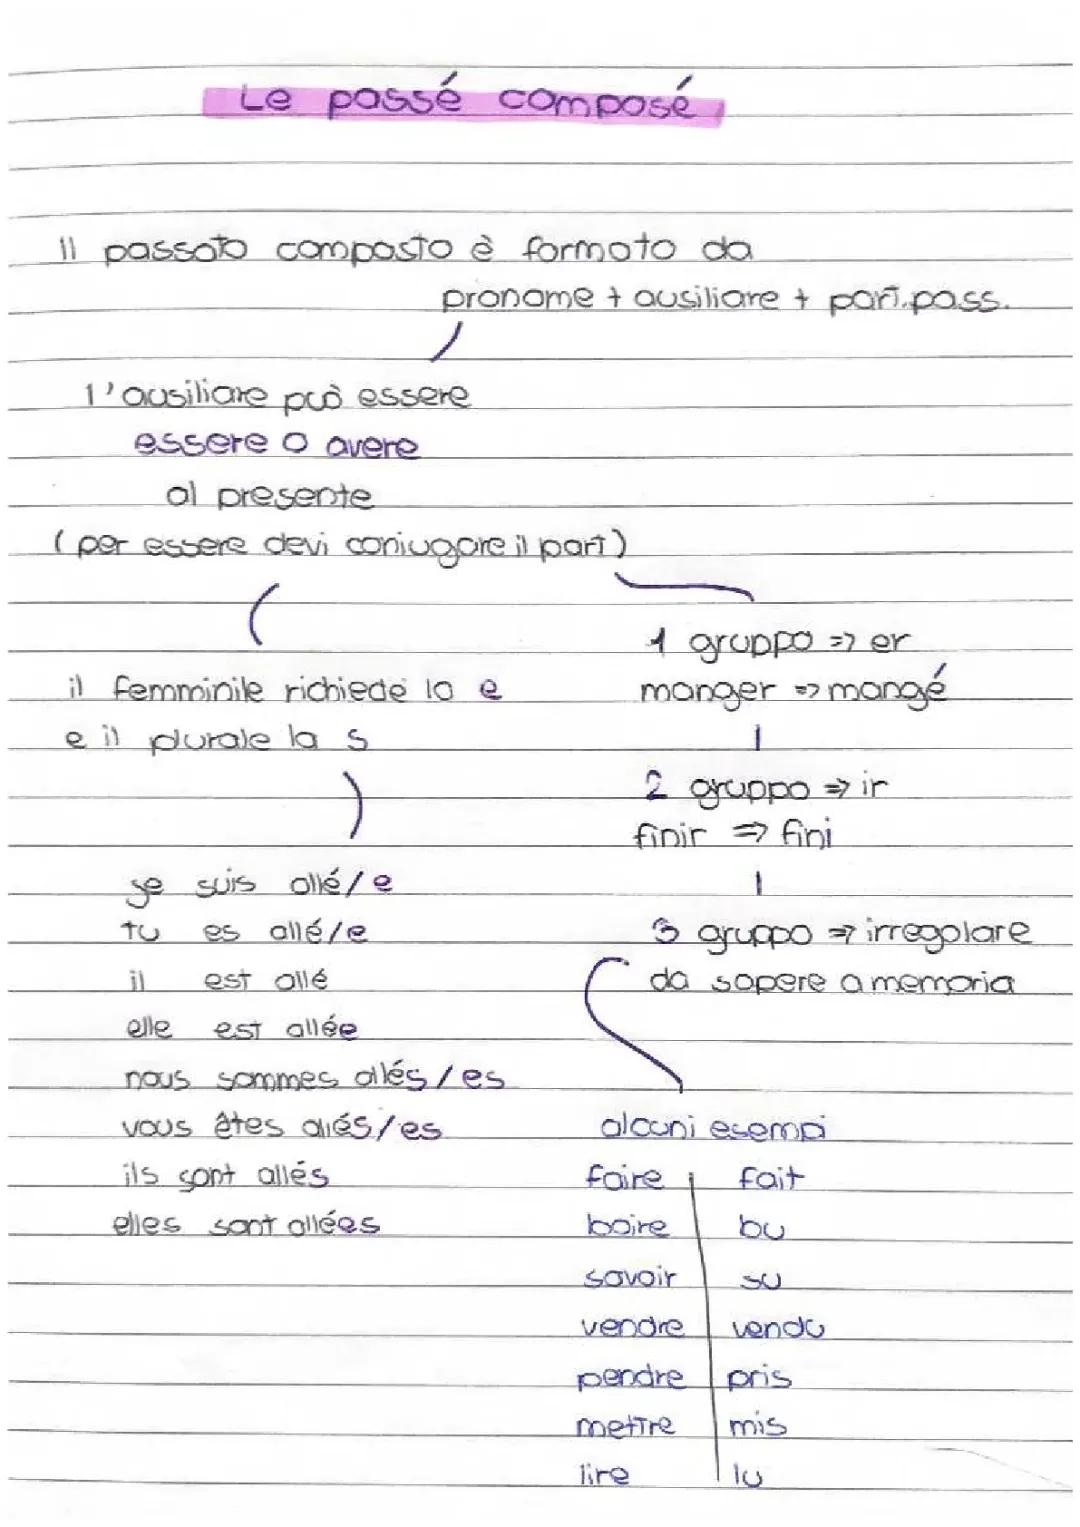 Le passé composé
Il passato composto è formato da
pronome + ausiliare + part.pass.
l'ausiliare può essere
essere o avere
al presente
(per essere devi coniugare il part)
il femminile richiede la e
e il plurale la s
je suis allé/e
tu es allé/e
il est allé
elle est allée
nous sommes allés/es
vous êtes allés/es
ils sont allés
elles sont allées
1 gruppo => er
manger => mangé
2 gruppo => ir
finir => fini
3 gruppo => irregolare
da sapere a memoria
alcuni esempi
faire fait
boire bu
savoir su
vendre vendu
pendre pris
mettre mis
lire lu